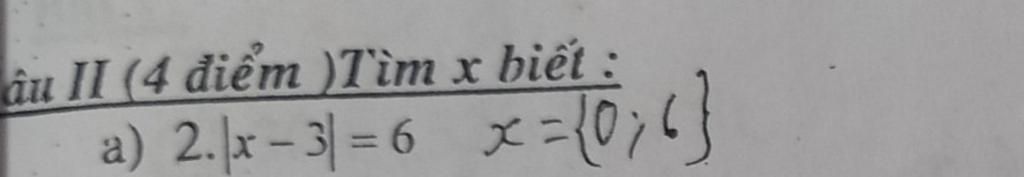 âu II (4 điểm )Tìm x biết :
a) 2.|x - 3| = 6 x = {0; 6}